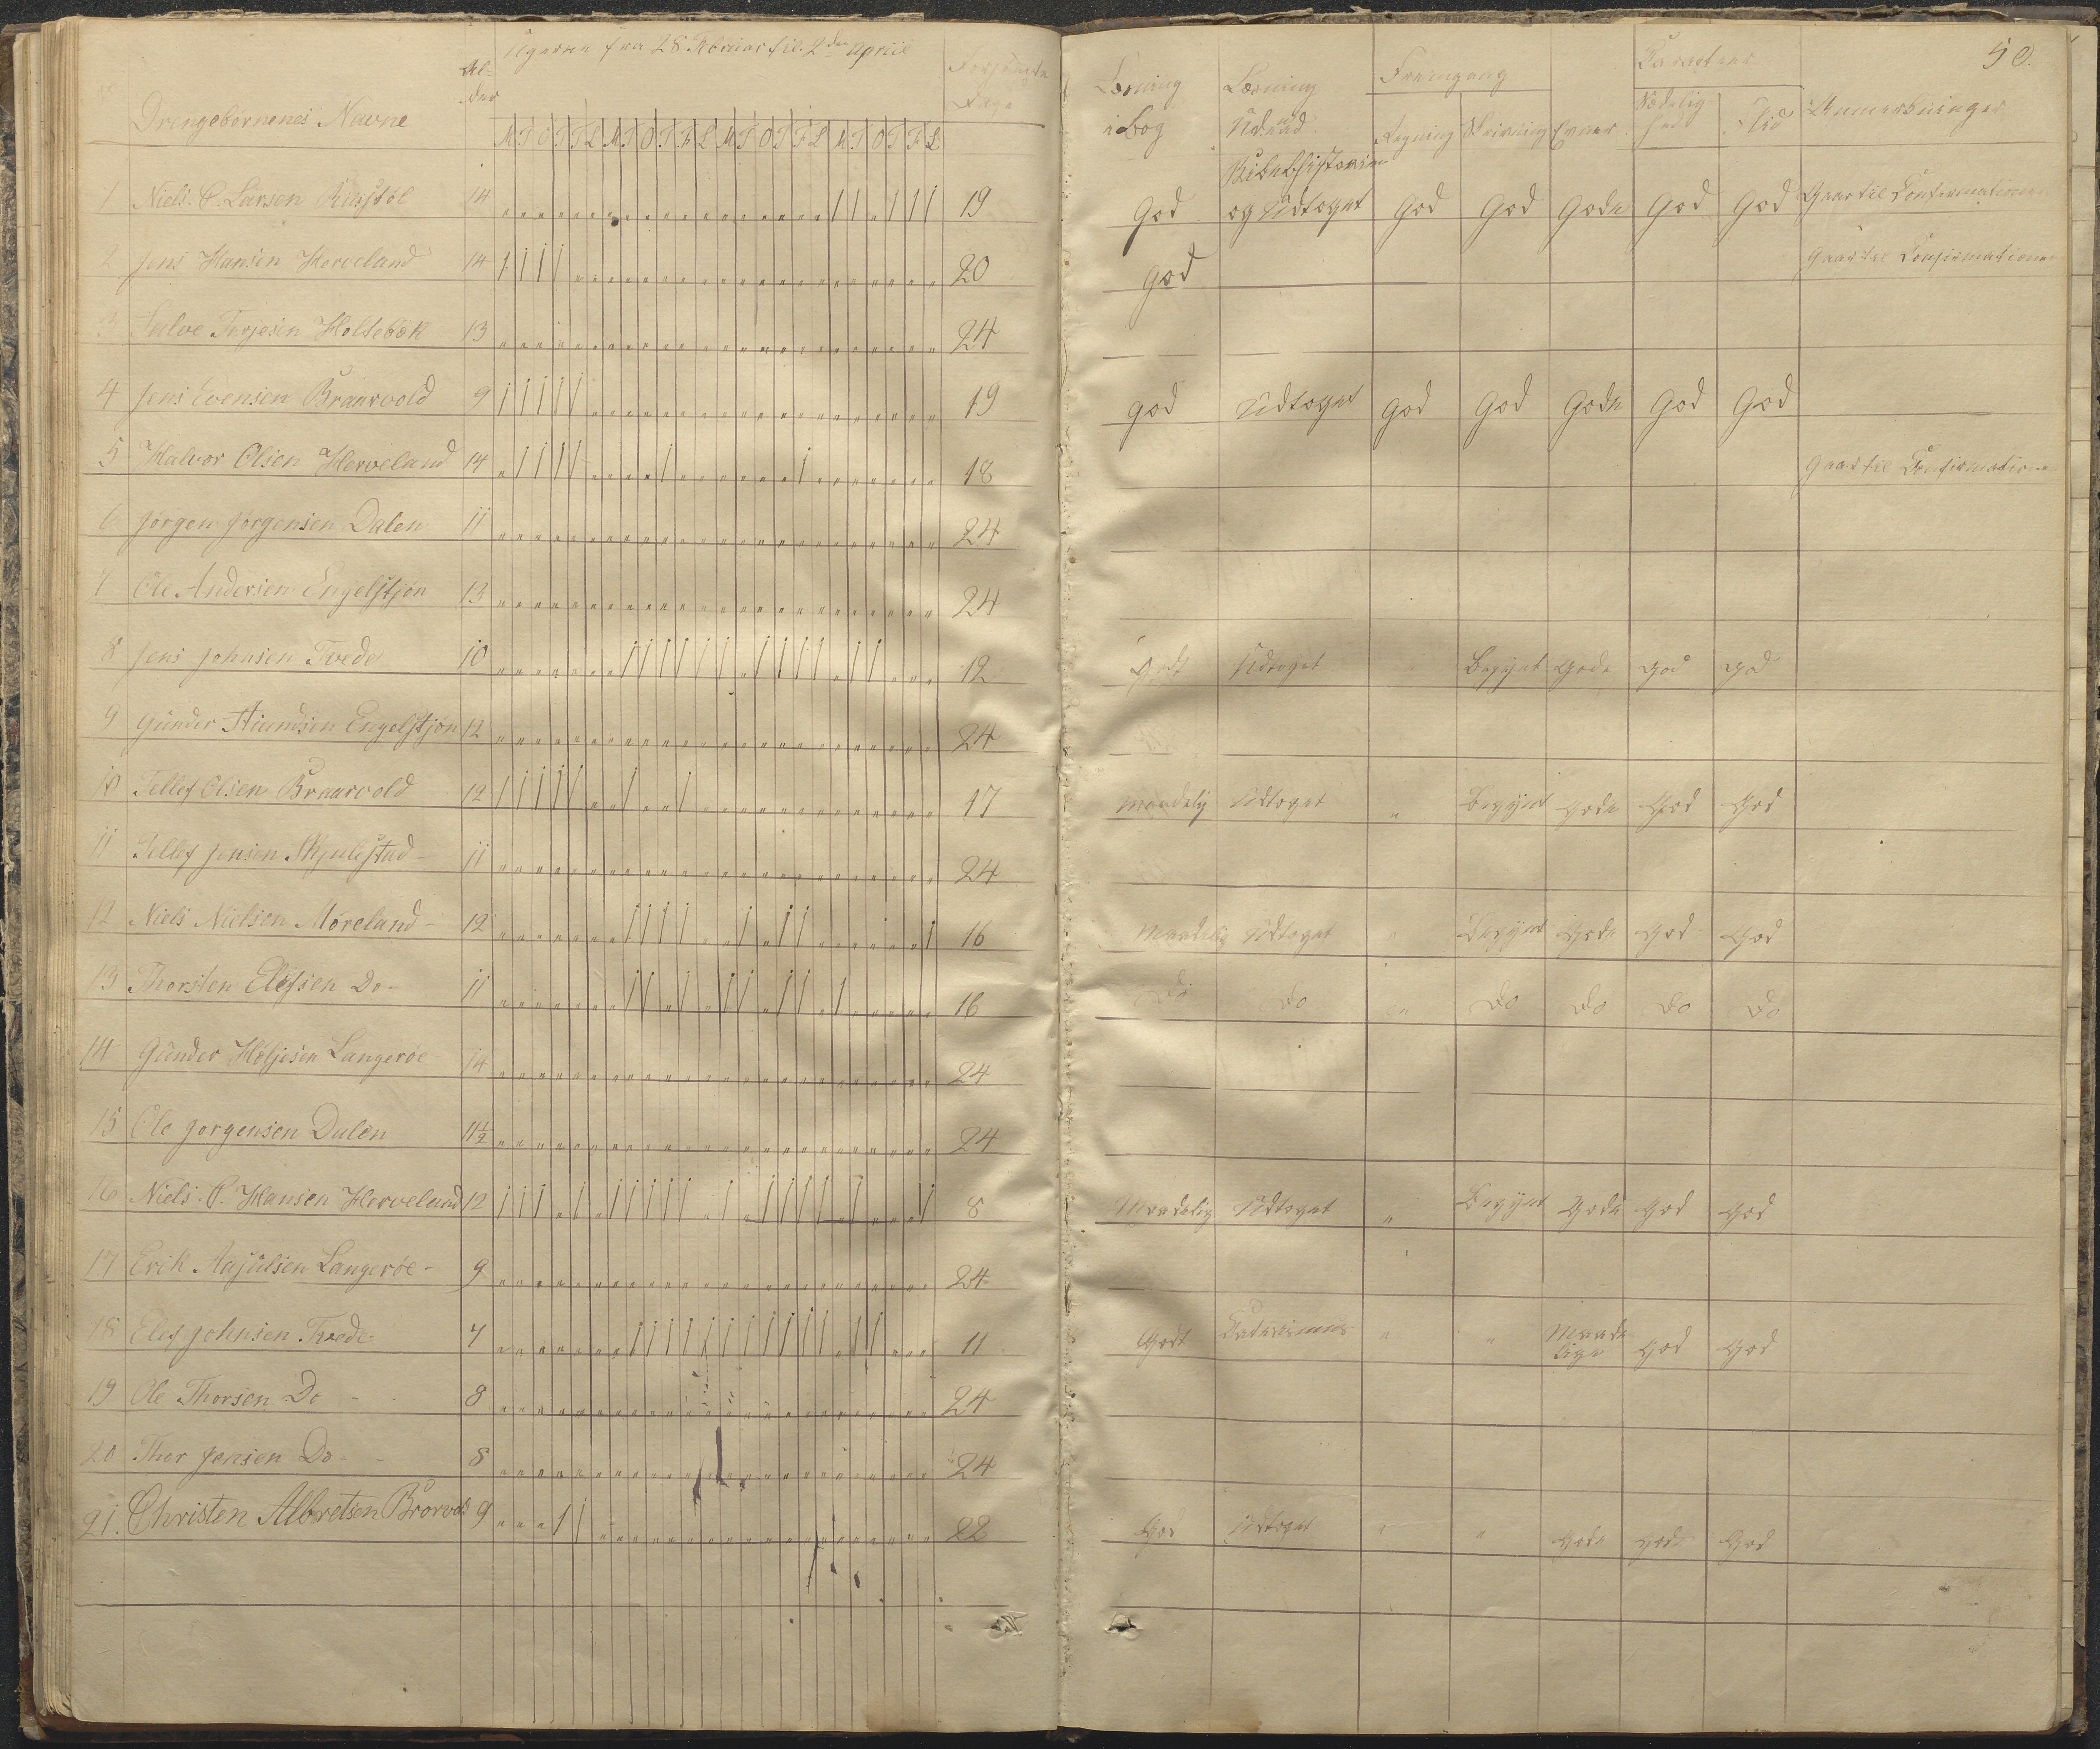 Ugerne fra 28 Februar til 2den April
Al-
der
Forsømte
Dage
Drengebørnenes Navne
M T O T F L M T O T F L M T O T F L M T O T F L
Læsning
i Bog
Læsning
Udenad
Fremgang
Regning Skrivning Evner
Karacteer
Sædelig
hed
Flid
Anmærkninger
50.
1 Niels P. Larsen 14 19 God Bibelhistorie
og Udtoget God God Gode God God Gaar til Confirmationen
2 Jens Hansen Herveland 14 20 God Gaar til Confirmationen
3 Salve Terjesen Holtebæk 13 24
4 Jens Evensen Braarvold 9 19 God Udtoget God God Gode God God
5 Halvor Olsen Herveland 14 18 Gaar til Confirmationen
6 Jørgen Jørgensen Dalen 11 24
7 Ole Andersen Engelstjøn 13 24
8 Jens Johnsen Tvede 10 12 Godt Udtoget " Begynt Gode God God
9 Gunder Engelstjøn 12 24
10 Tellef Olsen Braarvold 12 17 Maadelig Udtoget " Begynt Gode God God
11 Tellef Jensen Skjulestad 11 24
12 Niels Nielsen Møreland 12 16 Maadelig Udtoget " Begynt Gode God God
13 Thorsten Elefsen Do 11 16 Do Do " Do Do Do Do
14 Gunder Langerøe 14 24
15 Ole Jørgensen Dalen 11½ 24
16 Niels P. Hansen Herveland 12 8 Maadelig Udtoget " Begynt Gode God God
17 Erik Langerøe 9 24
18 Elef Johnsen Tvede 7 11 Godt Catekismus " " Maade-
lige God God
19 Ole Thorsen Do 8 24
20 Thor Jensen Do 8 24
21. Christen Albretsen Brorvold 9 22 God Udtoget " " Gode God God